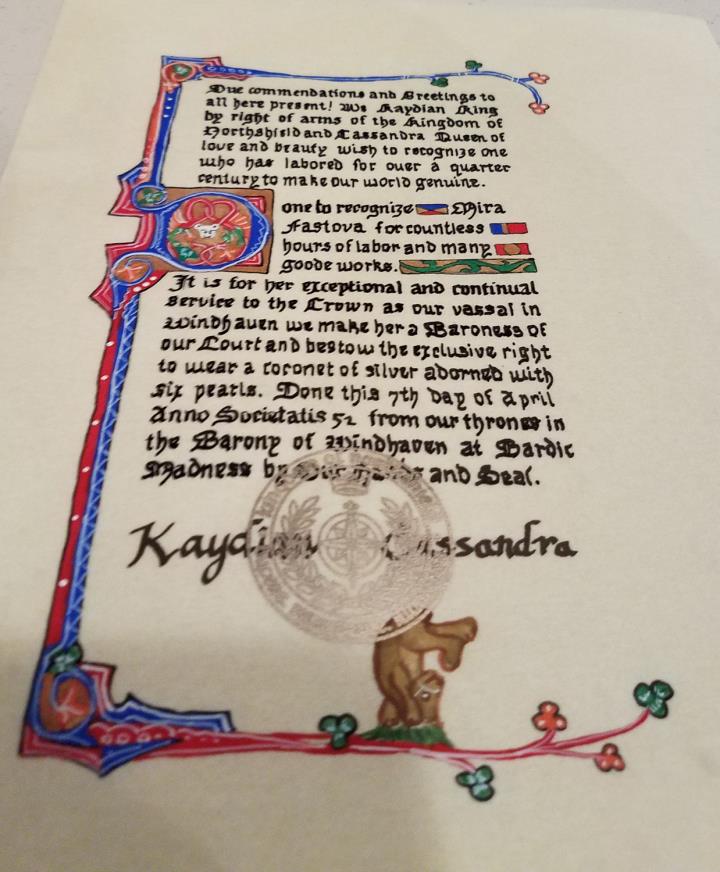 Due commendations and Greetings to
all here present! We Kaydian King
by right of arms of the Kingdom of
Northshield and Cassandra Queen of
love and beauty wish to recognize one
who has labored for over a quarter
century to make our world genuine.
one to recognize Mira
Fastova for countless
hours of labor and many
goode works.
It is for her exceptional and continual
service to the Crown as our vassal in
Windhaven we make her a Baroness of
our Court and bestow the exclusive right
to wear a coronet of silver adorned with
six pearls. Done this 7th day of April
Anno Societatis 52 from our thrones in
the Barony of Windhaven at Bardic
Madness by Our Hands and Seal.
Kaydian Cassandra